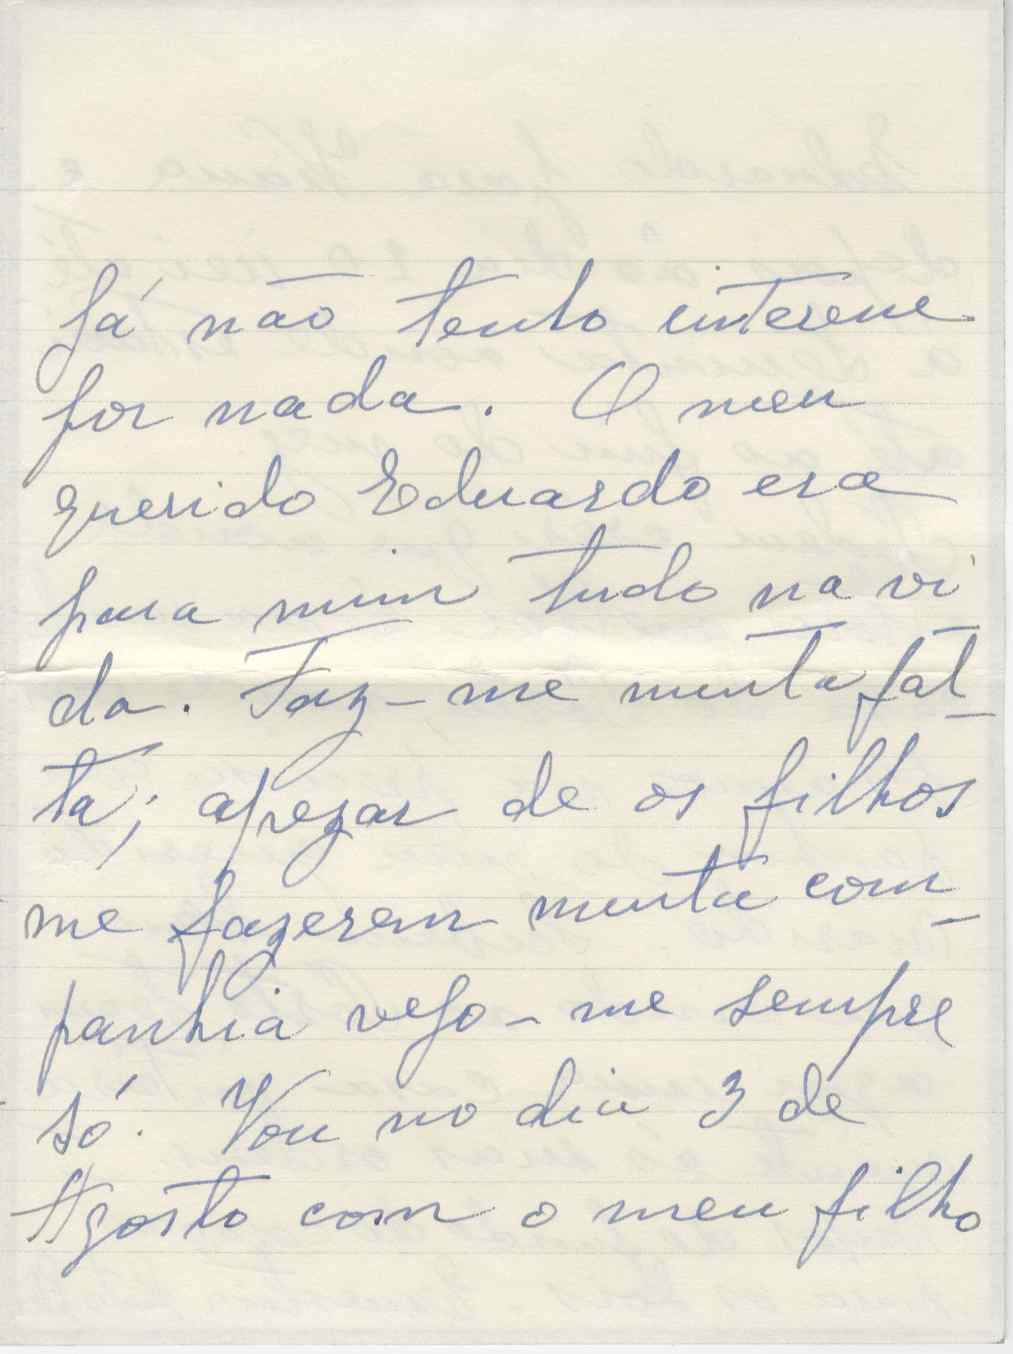 Já não tenho interesse
por nada. O meu
querido Eduardo era
para mim tudo na vi
da. Faz-me muita fal-
ta; apezar de os filhos
me fazerem muita com-
panhia vejo-me sempre
só. Vou no dia 3 de
Agosto com o meu filho